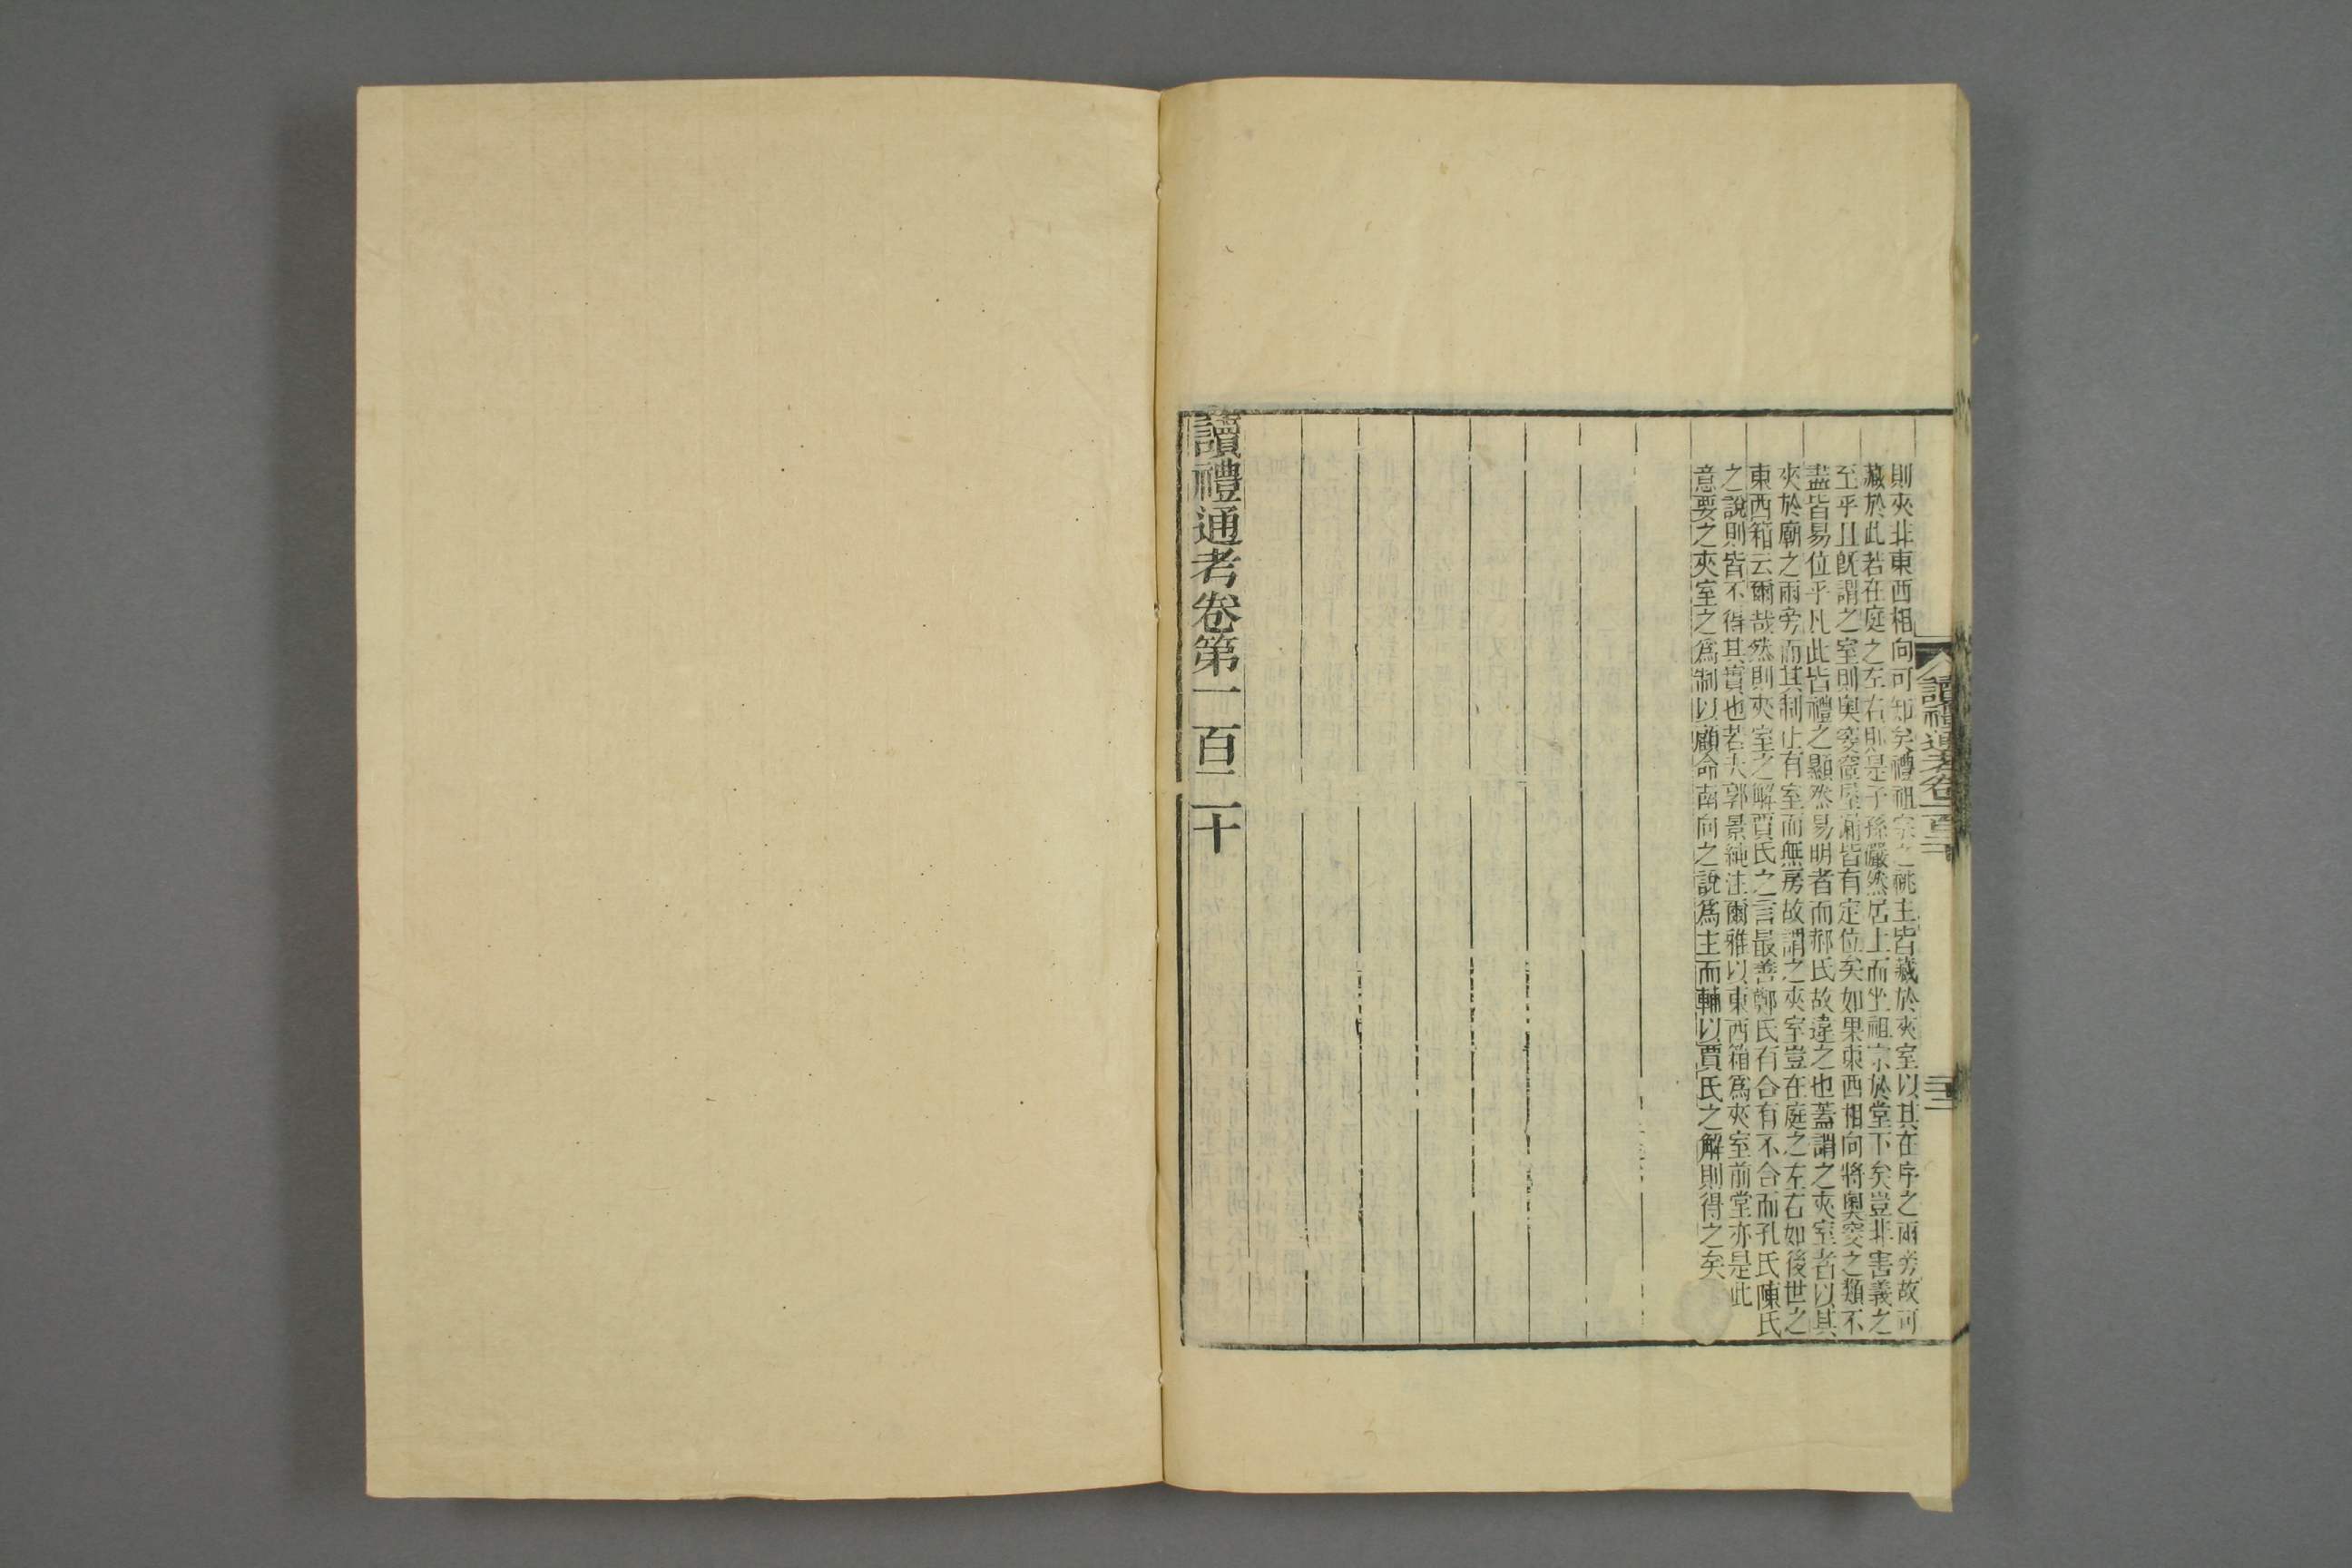 讀禮通考卷一百二
三二
則夾非東西相向可知矣禮祖宗之祧主皆藏於夾室以其在序之兩旁故可
藏於此若在庭之左右則是子孫儼然居上而坐祖宗於堂下矣豈非害義之
至乎且旣謂之室則奥窔窟屋漏皆有定位矣如果東西相向將奥窔之類不
盡皆易位乎凡此皆禮之顯然易明者而郝氏故違之也蓋謂之夾室者以其
夾於廟之兩旁而其制止有室而無房故謂之夾室豈在庭之左右如後世之
東西箱云爾哉然則夾室之解賈氏之言最善鄭氏有合有不合而孔氏陳氏
之說則皆不得其實也若夫郭景純注爾雅以東西箱爲夾室前堂亦是此
意要之夾室之爲制以顧命南向之說爲主而輔以賈氏之解則得之矣
讀禮通考卷第一百二十